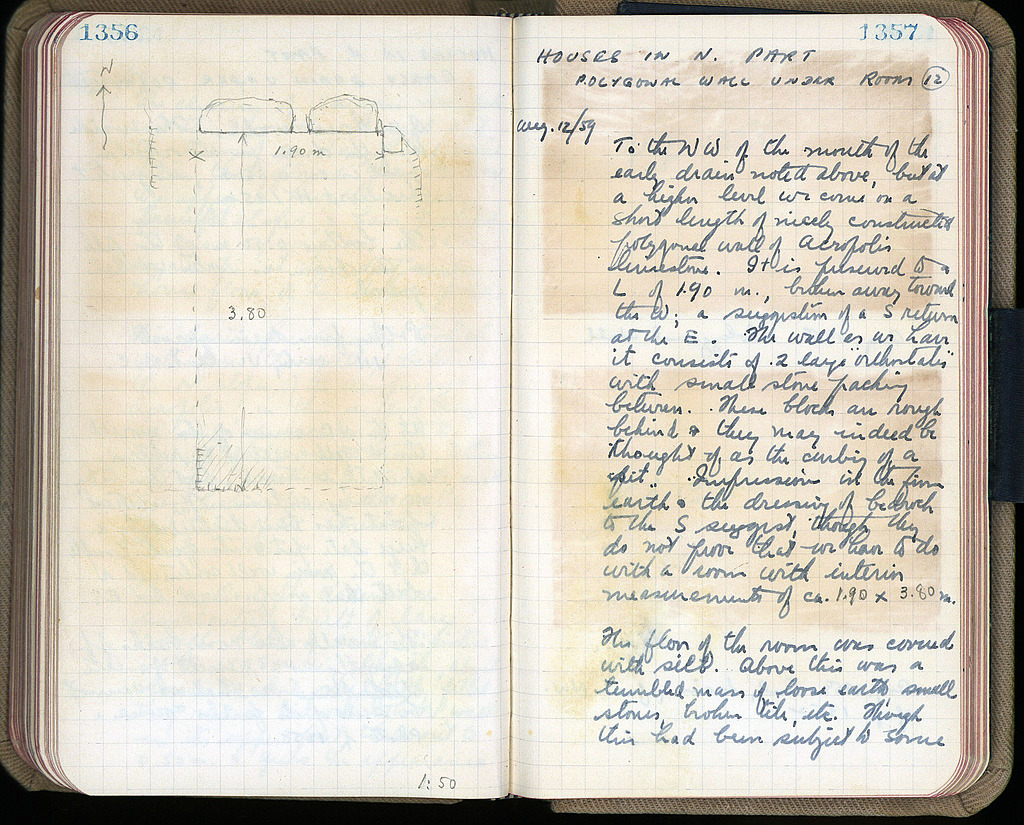 1356
N
1.90 m
3.80
1:50
1357
HOUSES IN N. PART
POLYGONAL WALL UNDER ROOM 12
Aug. 12/59
To the NW of the mouth of the
early drain noted above, but at
a higher level we come on a
short length of nicely constructed
polygonal wall of Acropolis
limestone. It is preserved to a
L of 1.90 m., broken away toward
the W; a suggestion of a S return
at the E. The wall as we have
it consists of 2 large "orthostats"
with small stone packing
between. These blocks are rough
behind & they may indeed be
thought of as the curbing of a
"pit". Impressions in the firm
earth & the dressing of bedrock
to the S suggest, though they
do not prove that we have to do
with a room with interior
measurements of ca. 1.90 x 3.80 m.
The floor of the room was covered
with silt. Above this was a
tumbled mass of loose earth, small
stones, broken tile, etc. Though
this had been subject to some